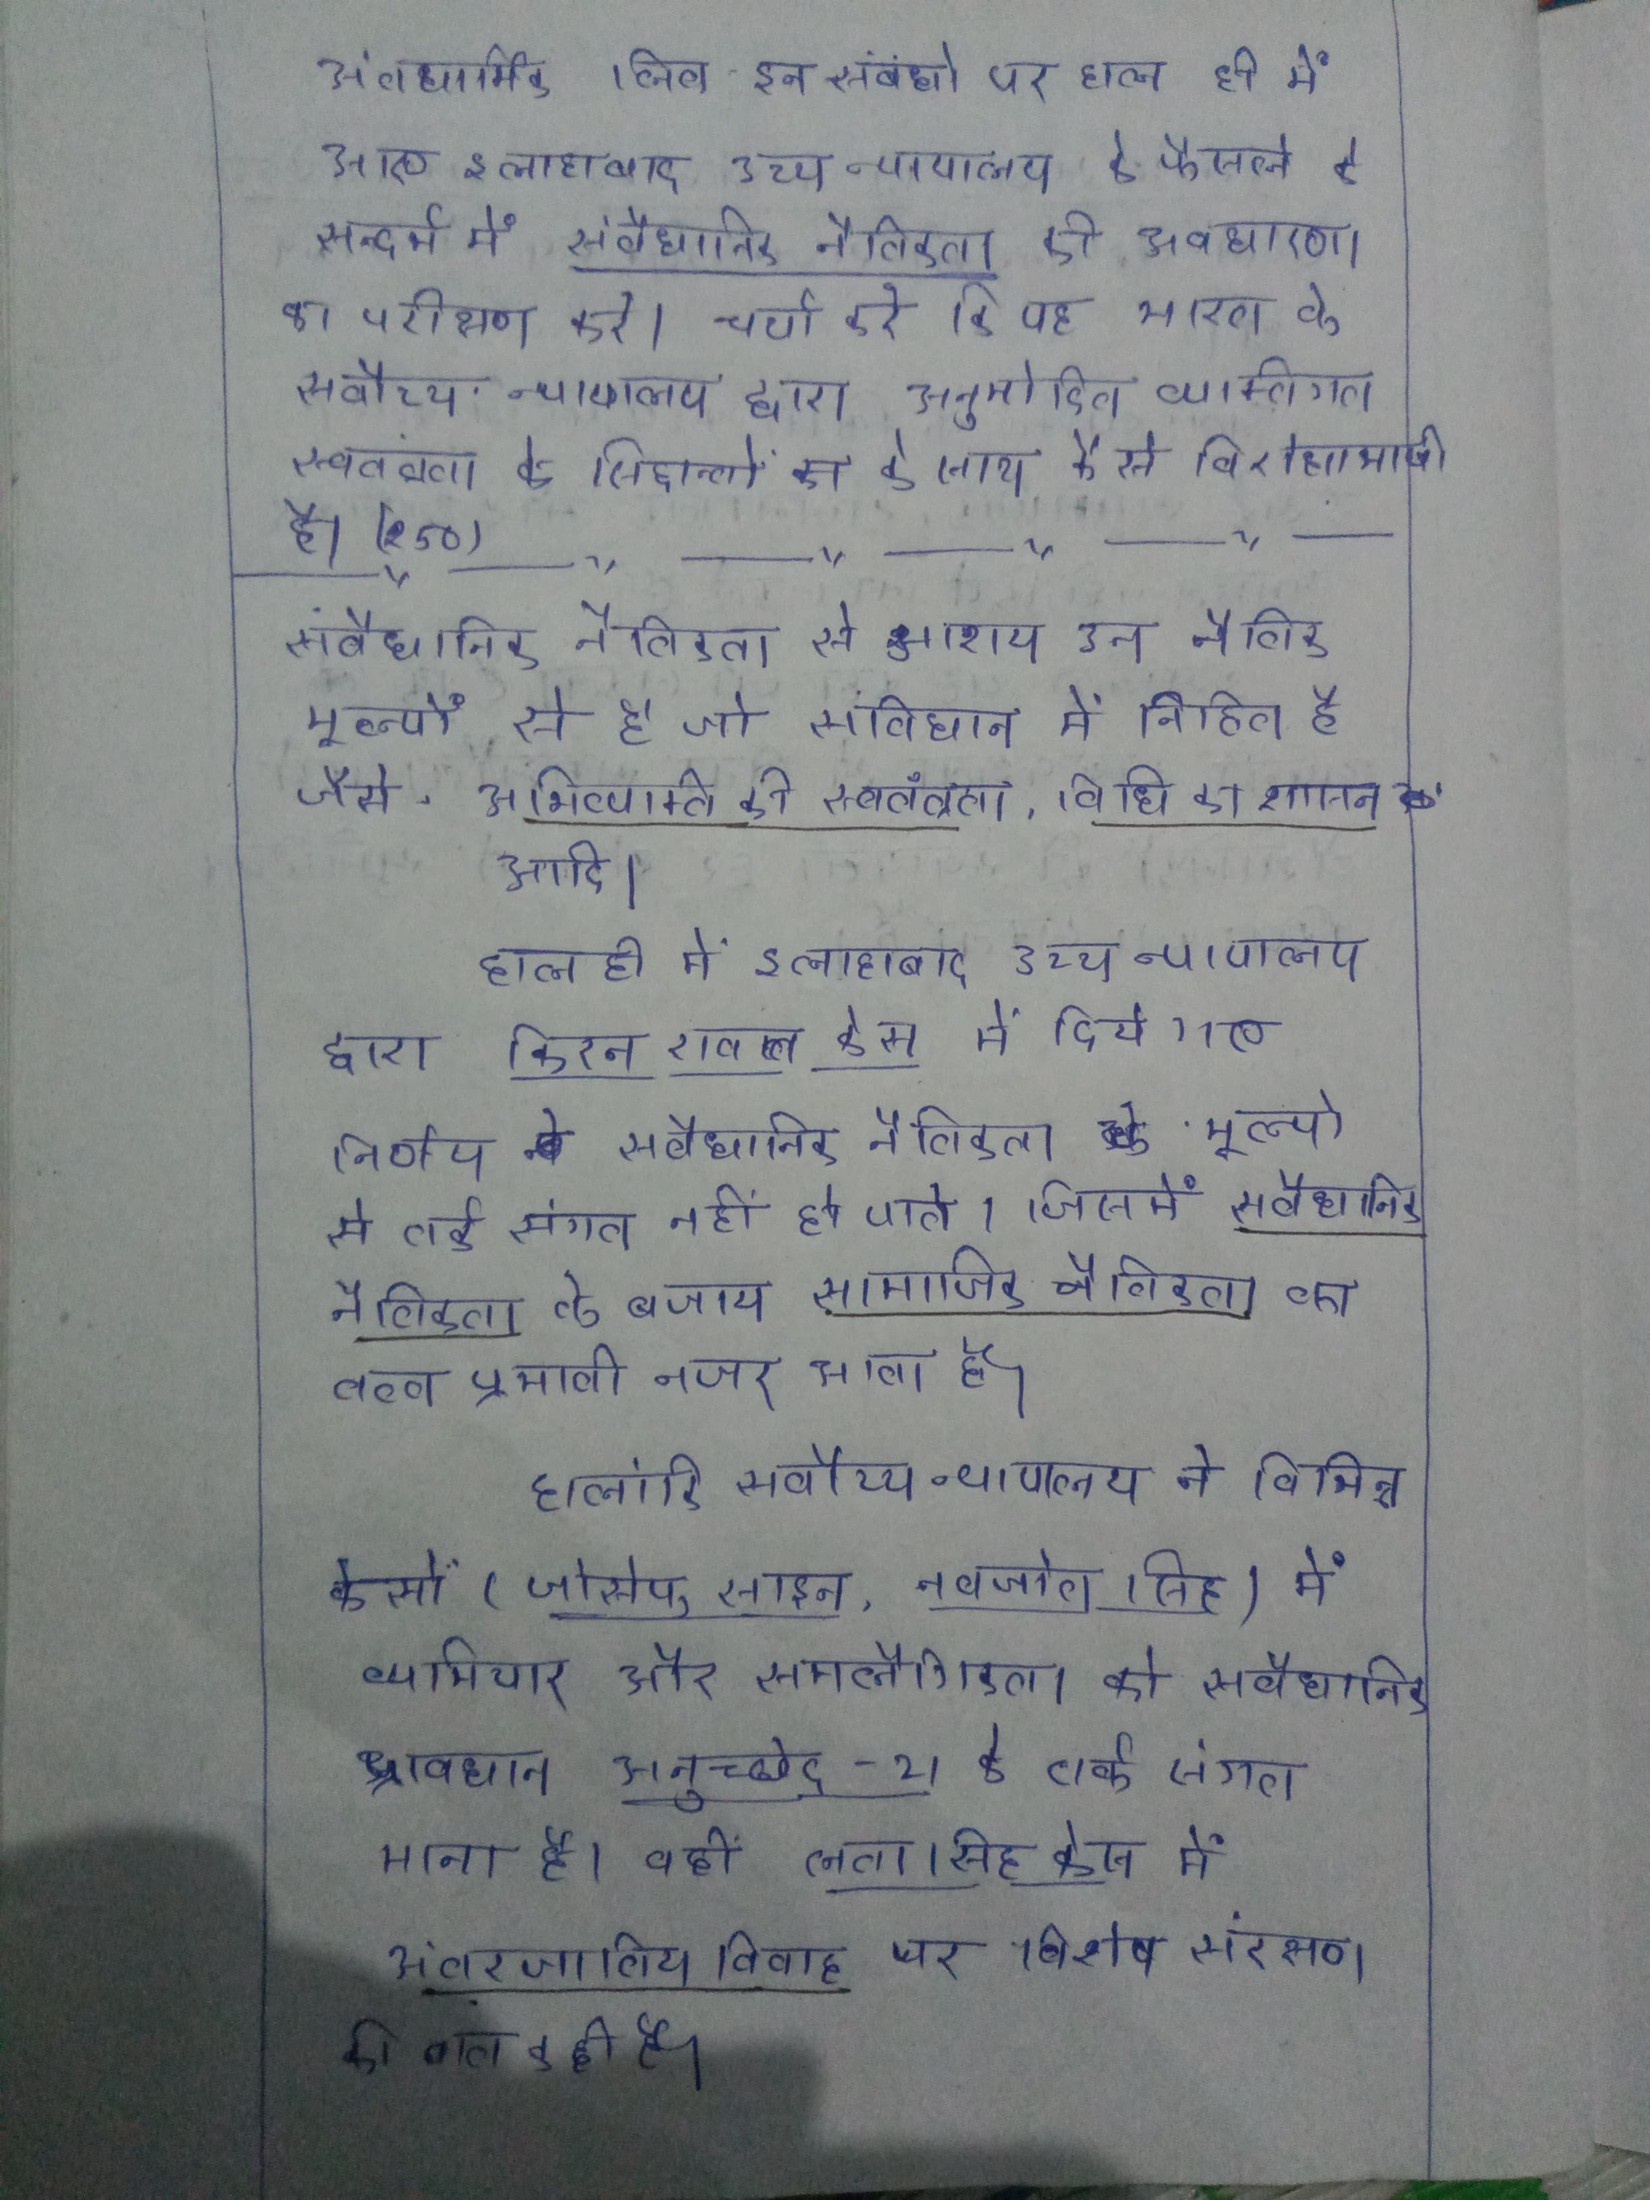 अंतधार्मिक लिव इन संबंधो पर हाल ही में
आए इलाहाबाद उच्च न्यायालय के फैसले के
सन्दर्भ में संवैधानिक नैतिकता की अवधारणा
का परीक्षण करे। चर्चा करे कि यह भारत के
सर्वोच्च न्यायालय द्वारा अनुमोदित व्यक्तिगत
स्वतंत्रता के सिद्दान्तों के साथ कैसे विरोधाभाषी
है। (250)
संवैधानिक नैतिकता से आशय उन नैतिक
मूल्यों से है जो संविधान में निहित है
जैसे - अभिव्यक्ति की स्वतंत्रता, विधि का शासन
आदि।
हाल ही में इलाहाबाद उच्च न्यायालय
द्वारा किरन रावत केस में दिये गए
निर्णय सवैधानिक नैतिकता के मूल्यो
से तर्क संगत नहीं हो पाते। जिसमें सवैधानिक
नैतिकता के बजाय सामाजिक नैतिकता का
तत्व प्रभावी नजर आता है।
हालांकि सर्वोच्च न्यायालय ने विभिन्न
केसों (जोसेफ साइन, नवजोत सिंह) में
व्यभिचार और समलैगिकता को सवैधानिक
प्रावधान अनुच्छेद - 21 के तर्क संगत
माना है। वहीं लता सिंह केस में
अंतरजातिय विवाह पर विशेष संरक्षण
की बात कही है।